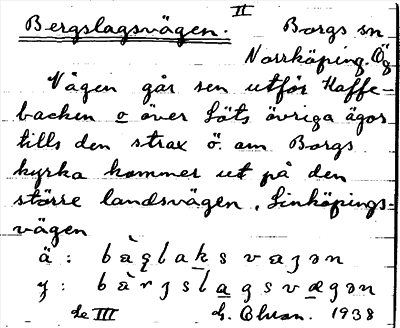 II
Bergslagsvägen. Borgs sn
Norrköping. Ög
Vägen går sen utför Kaffe-
backen o över Löts övriga ägor
tills den strax ö. om Borgs
kyrka kommer ut på den
större landsvägen, Linköpings-
vägen
ä : 
y : 
Se III 1938